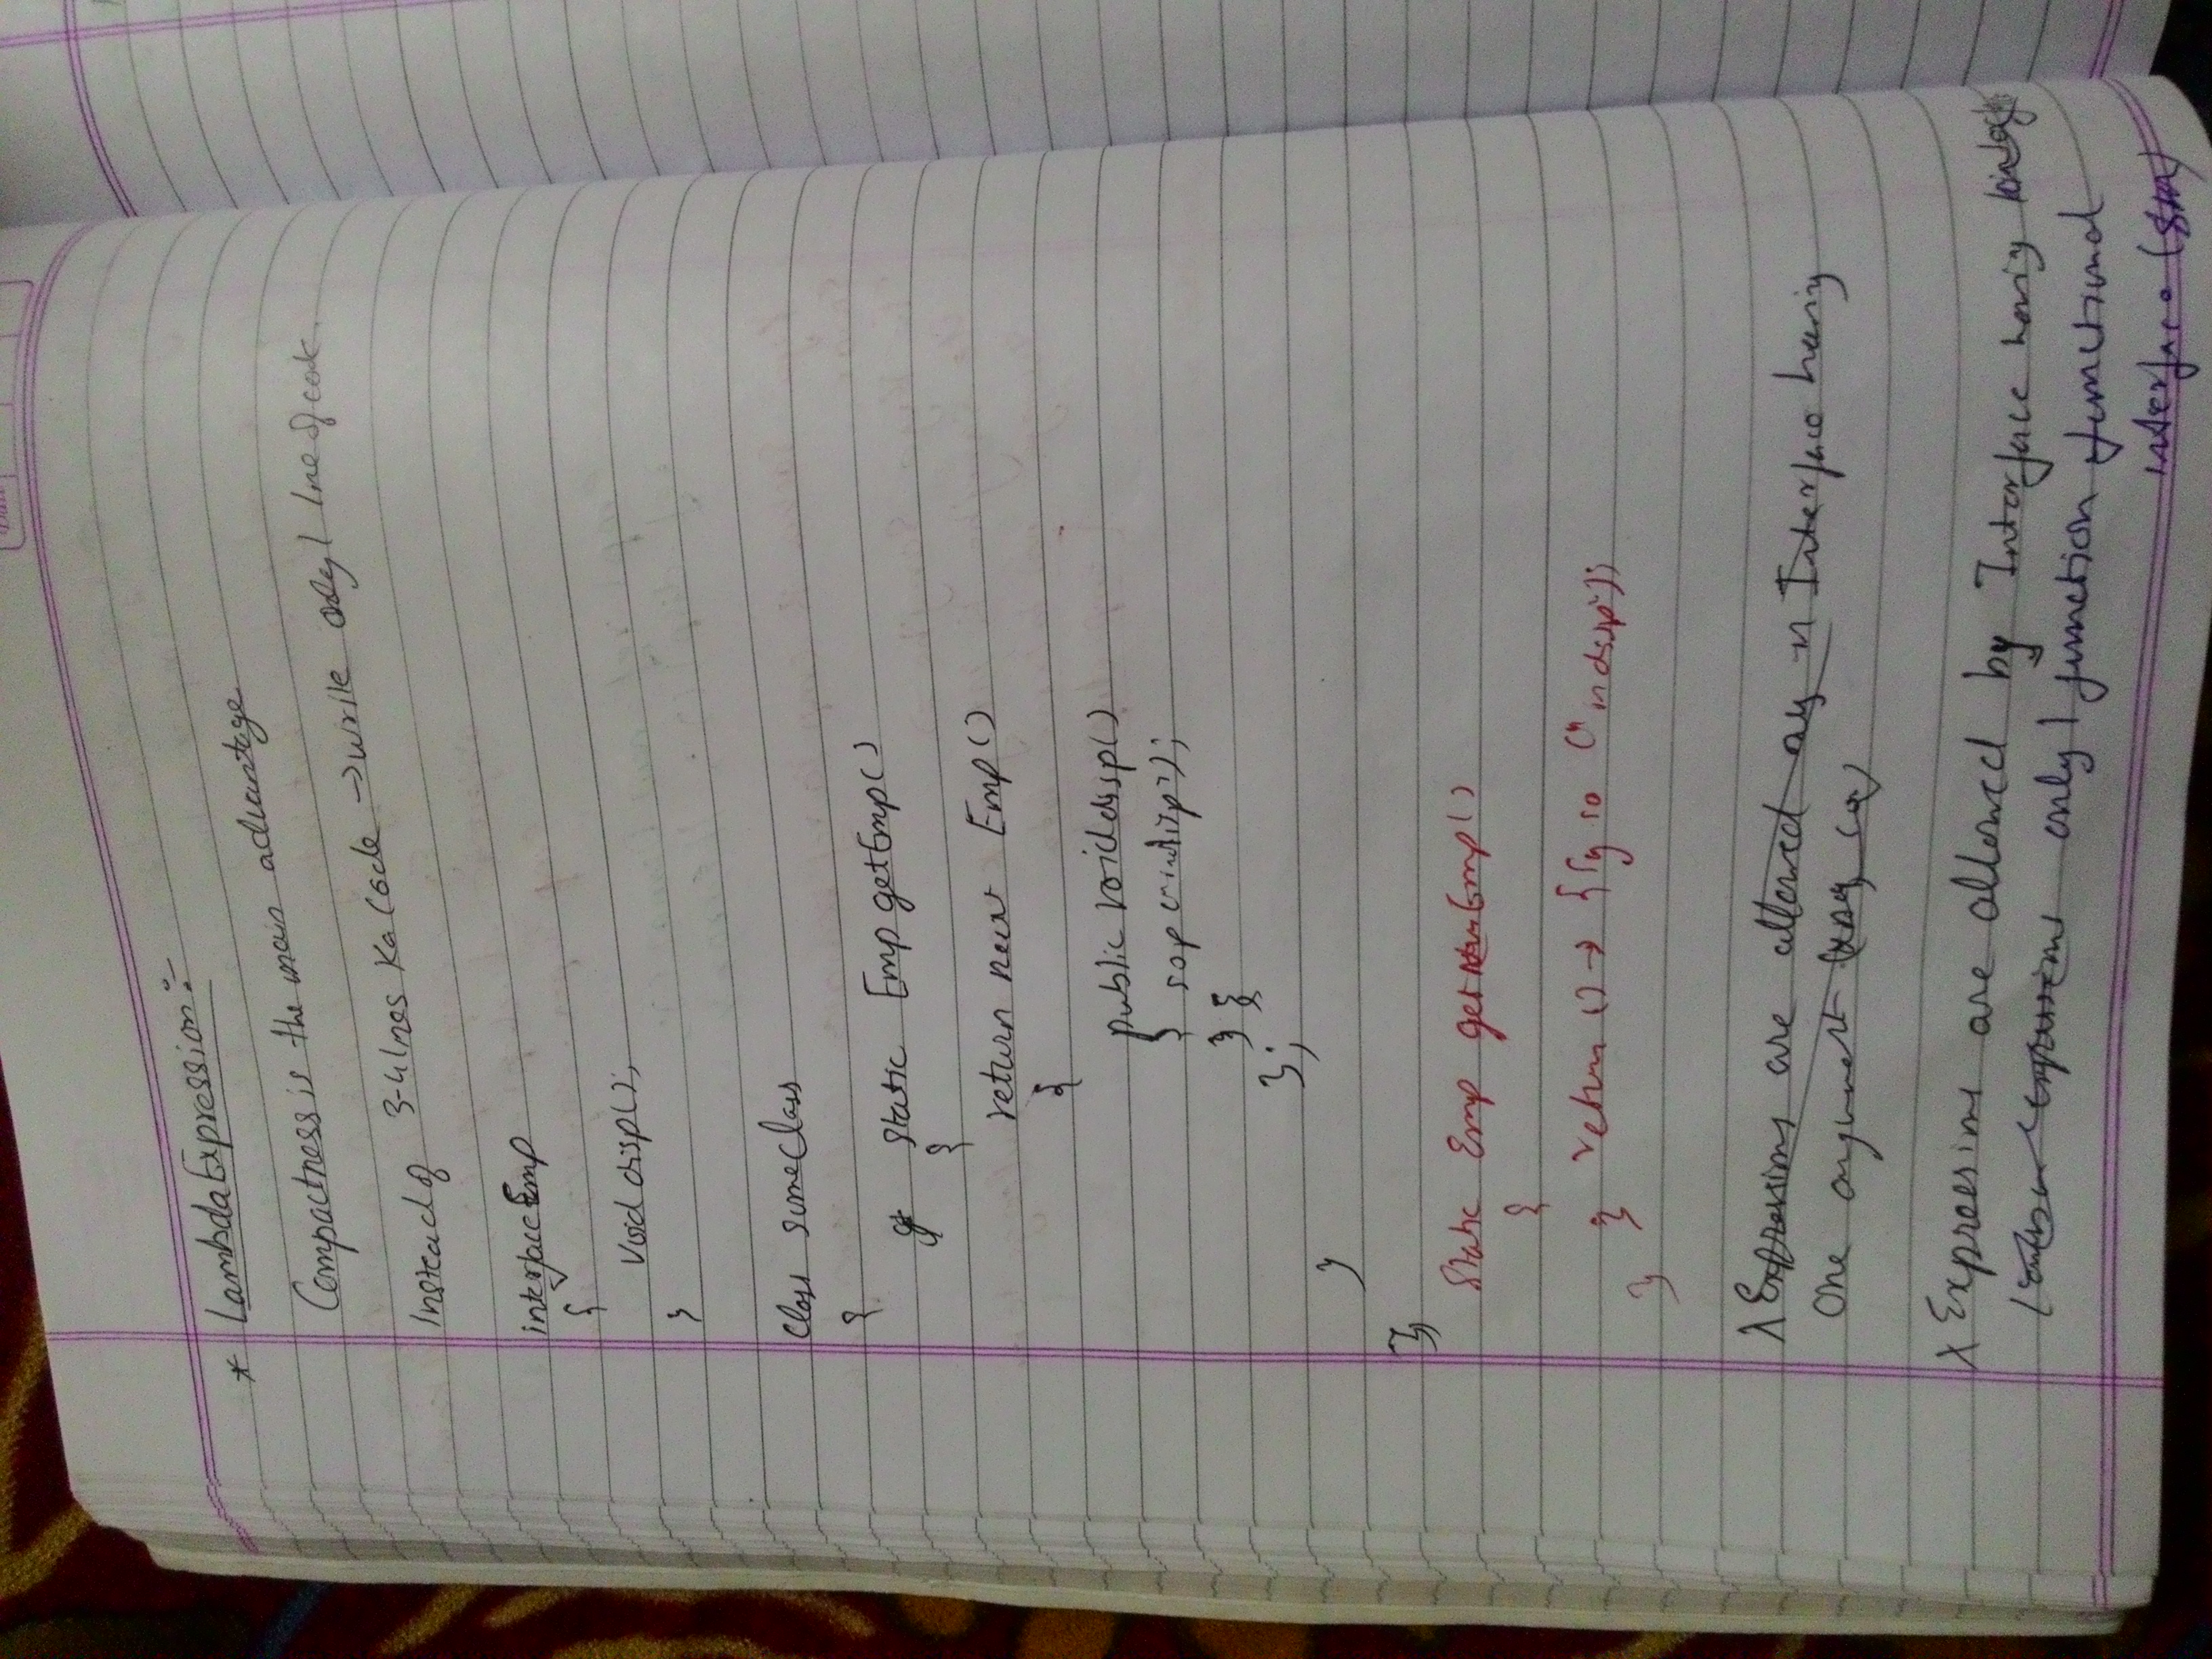 * Lambda Expression :-
Compactness is the main advantage
Instead of 3-4 lines Ka Code → write only 1 line of code.
interface Emp
{
void disp();
}
class someclass
{
static Emp getEmp()
{
return new Emp()
{
public void disp()
{ sop("in disp");
}
};
}
static Emp getnewEmp()
{
return () → { so ("in disp");
}
}
λ Expressions are allowed in Interface having
one argument
λ Expressions are allowed by Interface having
only 1 function functional
interface (SM)